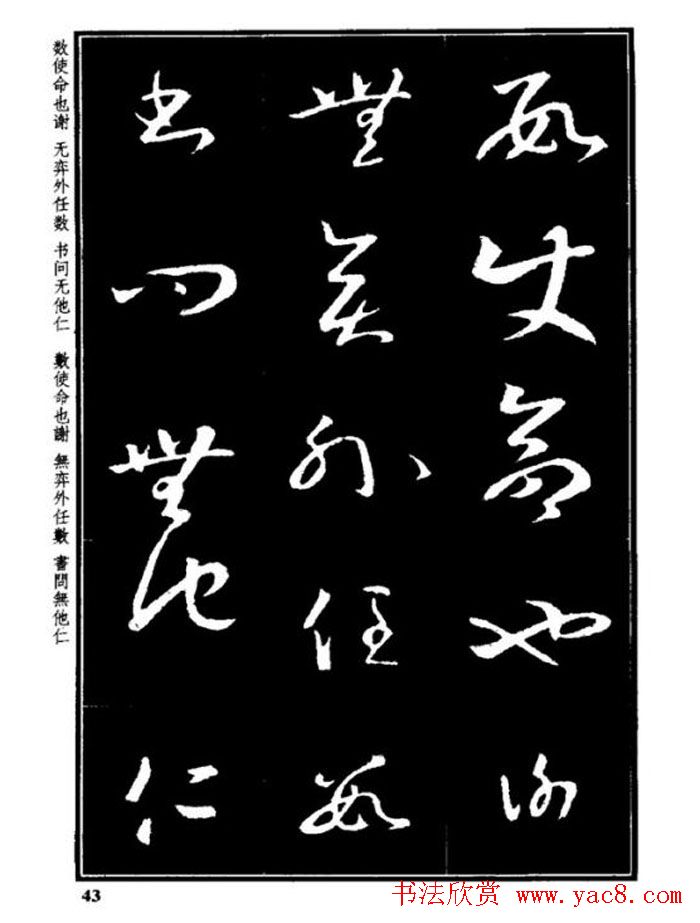 數使命也謝
無弈外任數
書問無他仁
数使命也谢 无弈外任数 书问无他仁
數使命也謝 無弈外任數 書問無他仁
43
书法欣赏 www.yac8.com